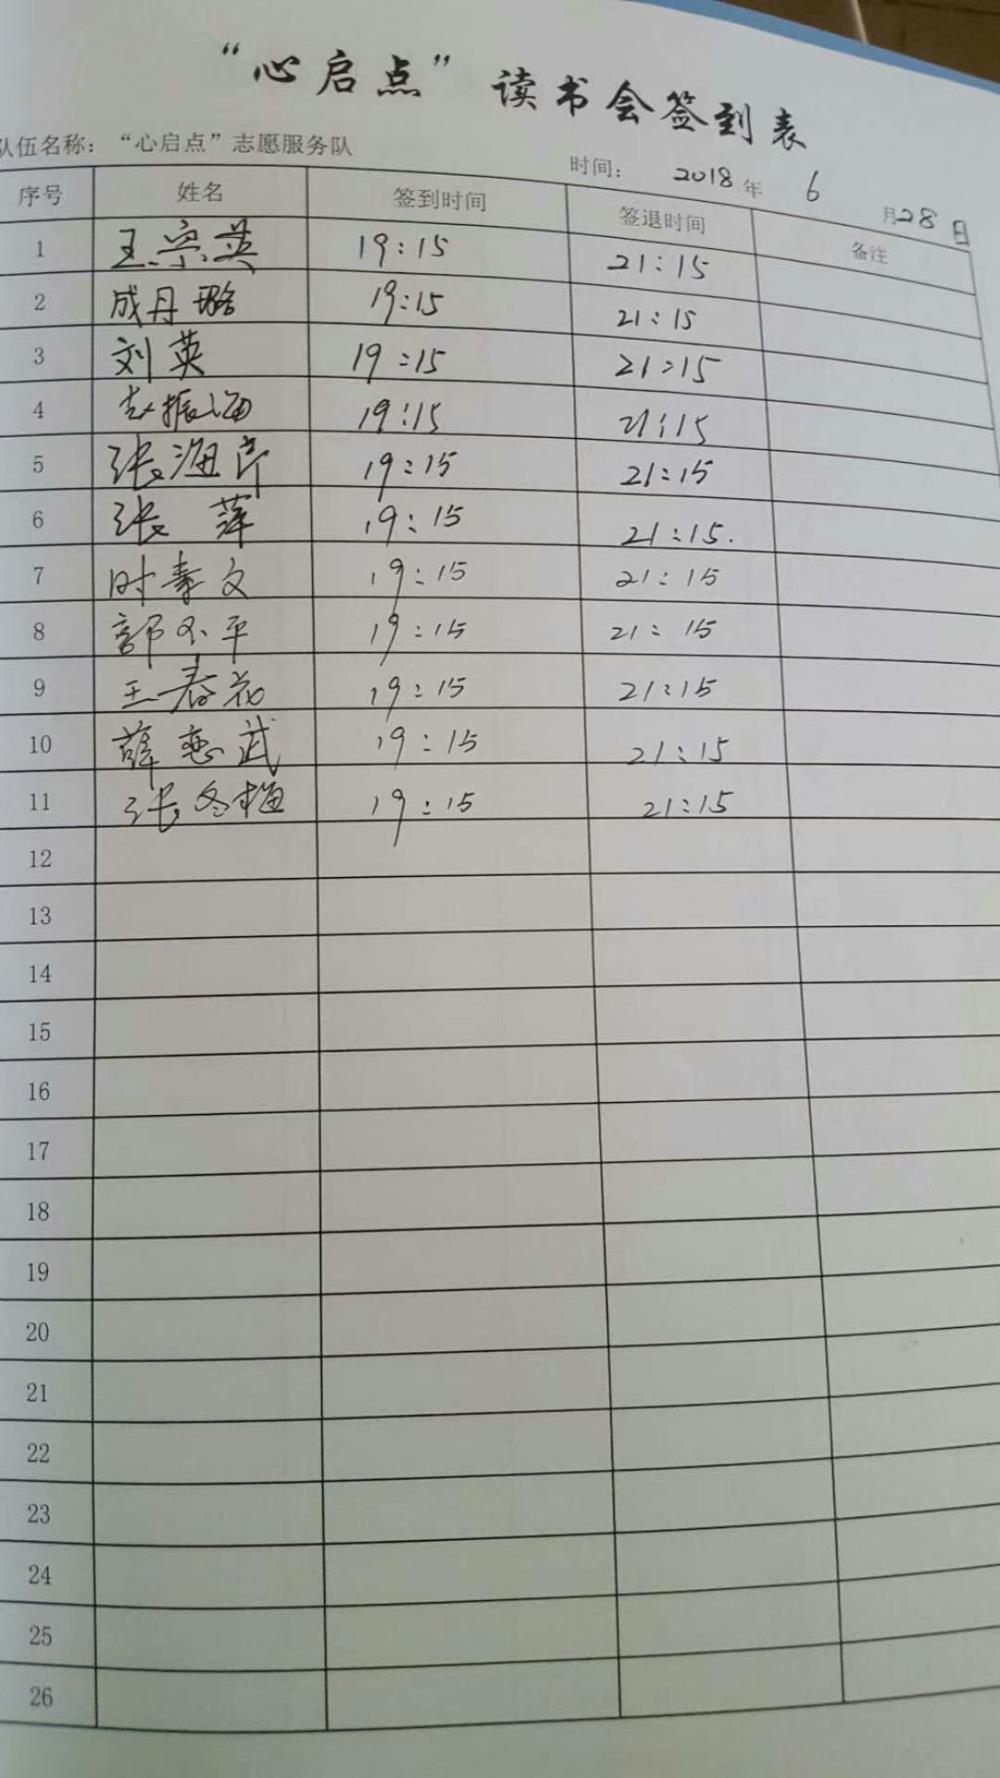 “心启点”读书会签到表
队伍名称：“心启点”志愿服务队
时间： 2018 年 6 月 28 日
序号 姓名 签到时间 签退时间 备注
1 王宗英 19:15 21:15
2 成丹璐 19:15 21:15
3 刘英 19:15 21:15
4 赵振海 19:15 21:15
5 张海芹 19:15 21:15
6 张萍 19:15 21:15.
7 时素文 19:15 21:15
8 郭不平 19:15 21:15
9 王春花 19:15 21:15
10 薛 武 19:15 21:15
11 张冬梅 19:15 21:15
12
13
14
15
16
17
18
19
20
21
22
23
24
25
26